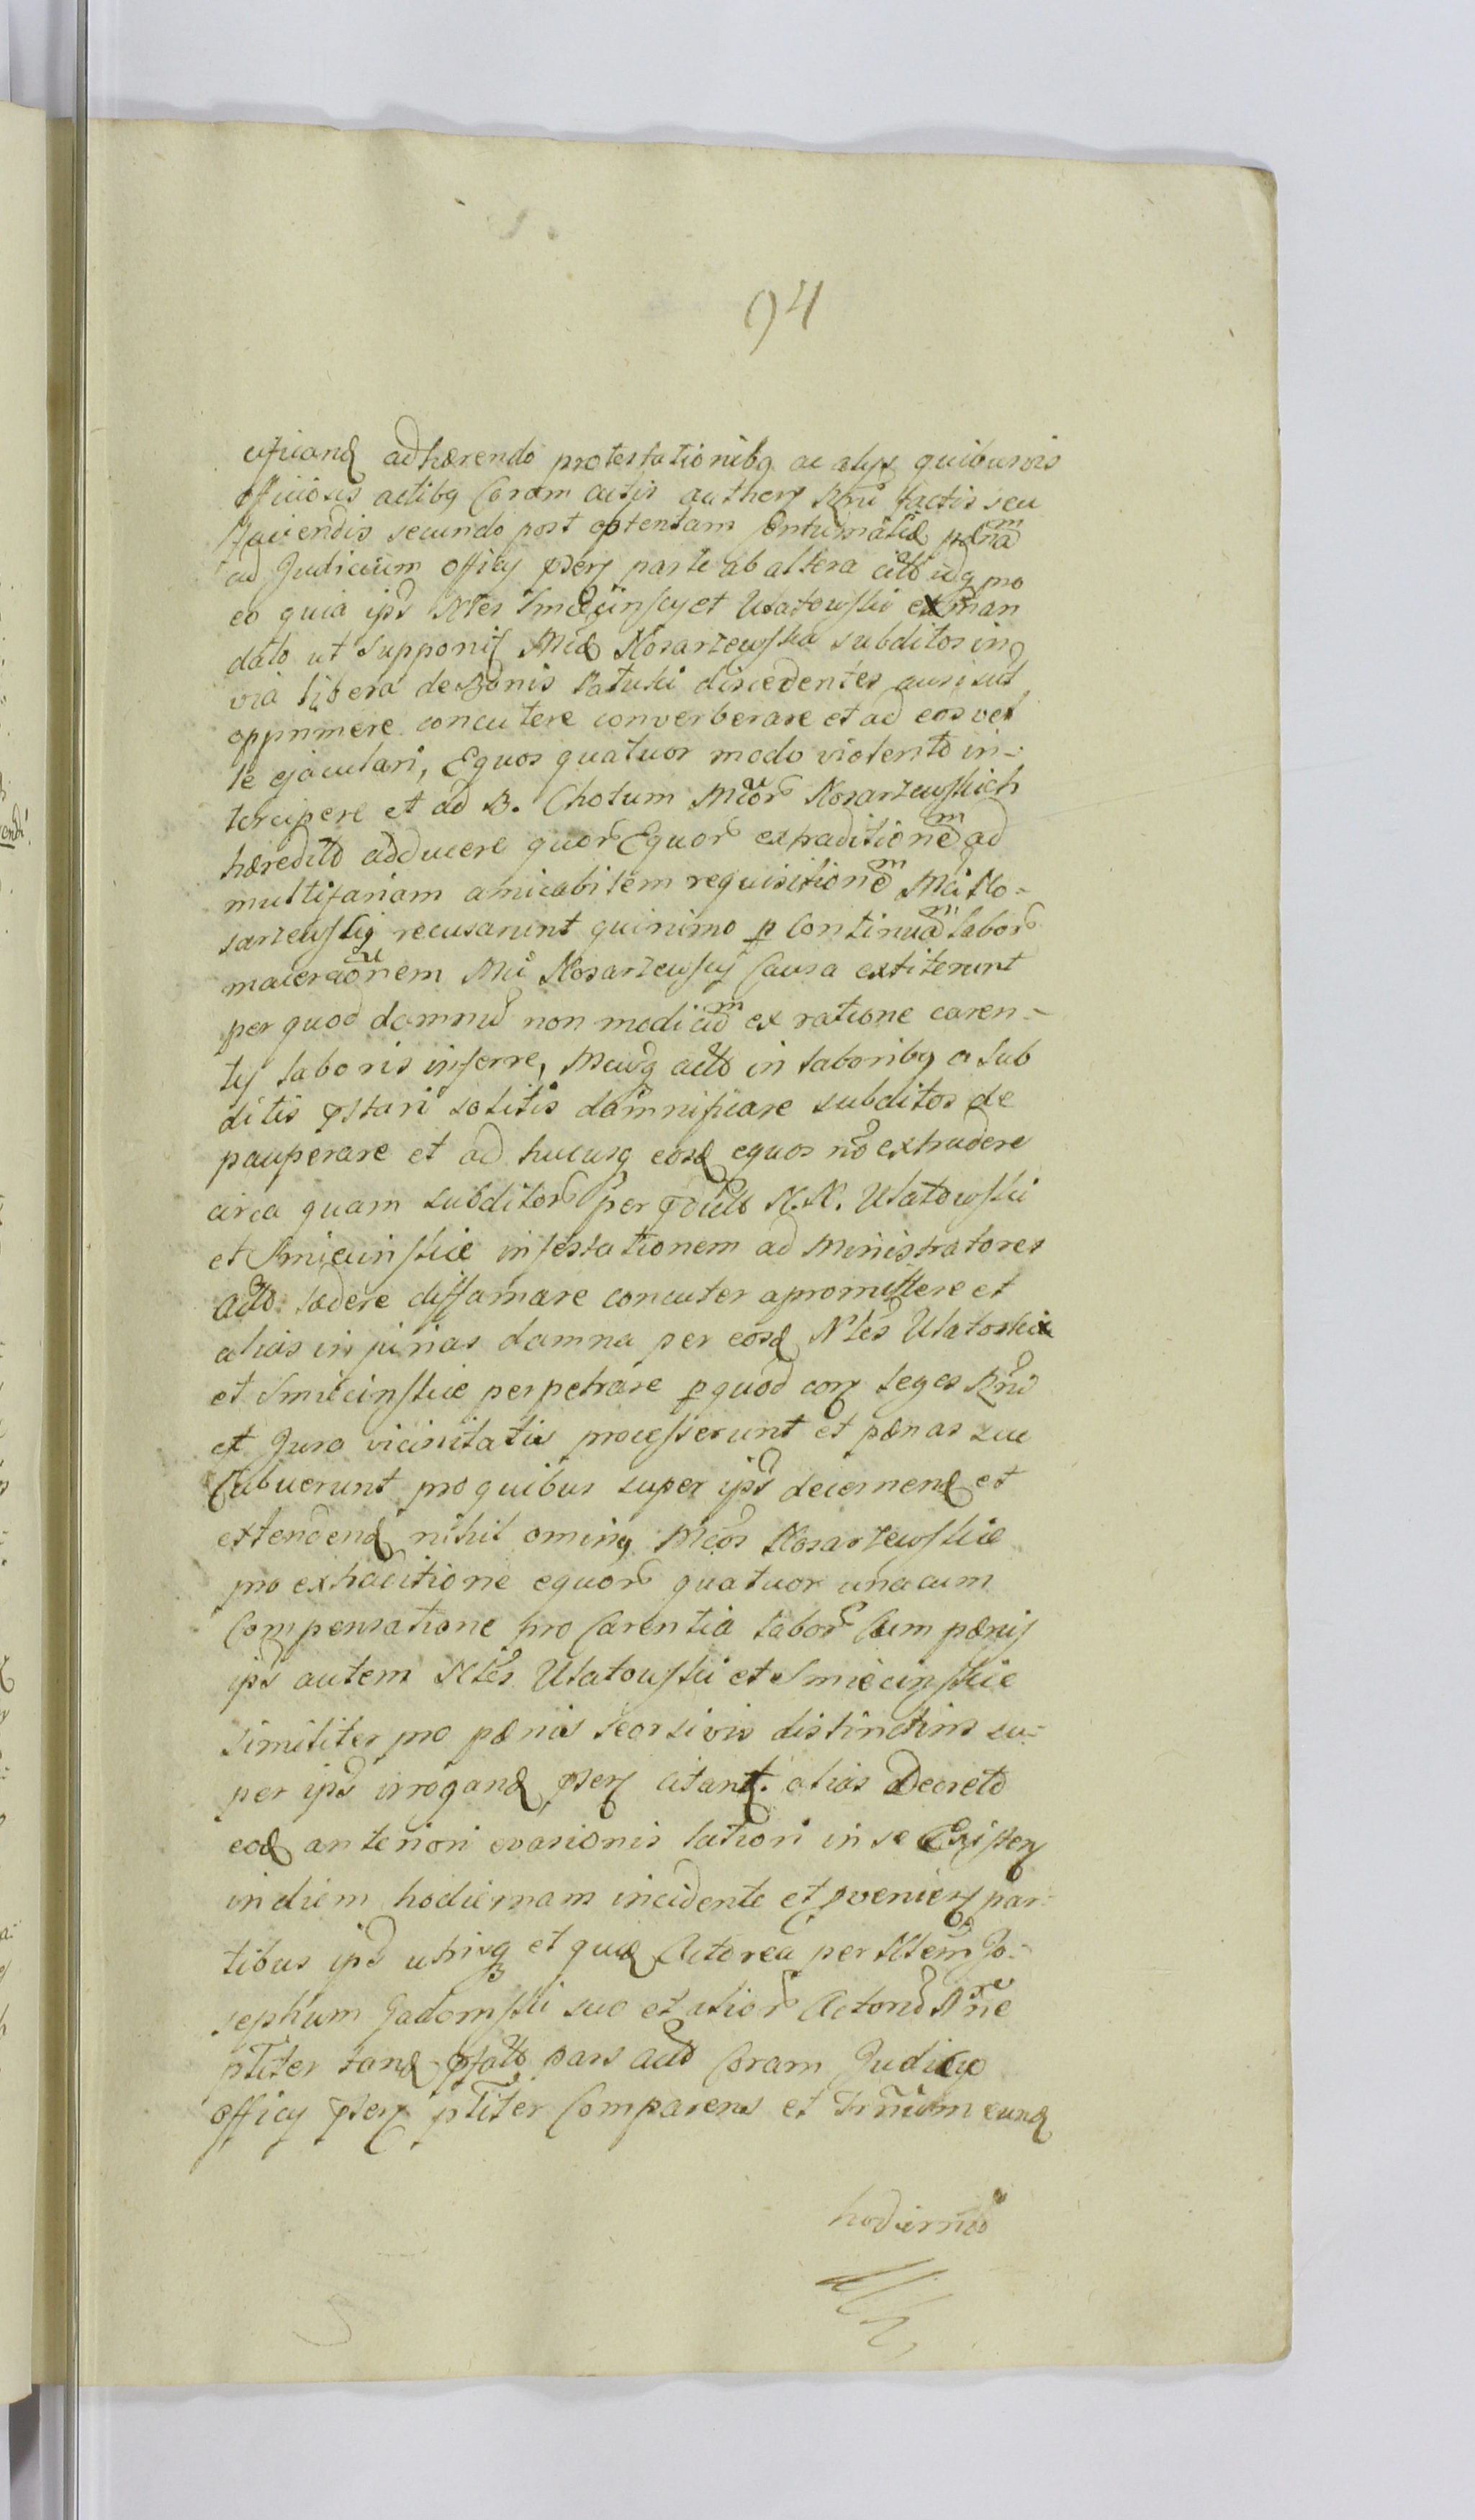 94
adhærendo protestationibq ac alys quibusvis
officiosis actibq Coram actis authen Rni factis seu
faciendis secundo post optentam pœna
ad Judicium officy pnsen parte ab altera citt idq pro
eo quia ips Ntes Smiecinscy et Utatowski ex man
dato ut supponit Mcæ Kosarzewska subditos in
via libera de Bonis discedentes ausi sut
opprimere concutere converberare et ad eos vel
le ejaculari, Equos quatuor modo violento in-:
tercipere et ad B. Chotum Mcor Kosarzewskich
hæredit adducere quor Equor extraditionem ad
multifariam amicabilem requisitionem Mci Ko-
sarzewskig recusarunt quinimo p Continua labor
macerãonem Mci Kosarzewscy Causa extiterunt
per quod damnu non modicu ex ratione caren-
ty laboris inferre, actt in laboribq a sub
ditis pstari solitis damnificare subditos de
pauperare et ad hucusq eosd equos no extradere
circa quam subditor per N.N. Utatowski
et Smiecinskie infestationem ad Ministratores
actt lædere diffamare concuter a promittere et
alias injurias damna per eosd Ntes Utatoskie
et Smiecinskie perpetrare p quod con leges Rni
et Jura vicinitatis processerunt et pœnas suc
Cubuerunt pro quibus super ips decernend et
extendend nihil ominq Mcos Kosarzewskie
pro extraditione equor quatuor una cum
Compensatione pro Carentia labor Cum pænis
ips autem Ntes Utatowski et Smiecinskie
similiter pro pænis seorsivis distinctim su-
per ips irrogand psen citant. alias Decreto
eod anteriori evasionis latiori in se Existen
in diem hodiernam incidente et pvenien par-
tibus ips utrinq et quid Actorea per Ntem Jo-
sephum Gadomski suo et alior Actoru Nne
ptiter tand pars actt Coram Judicio
officy psen ptiter Comparens et Trnium eund
hodiernũ